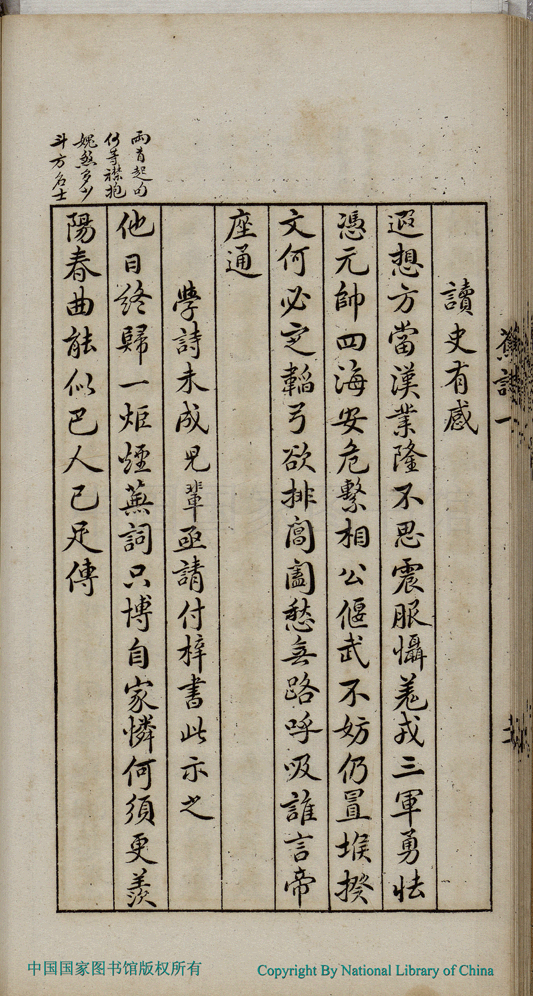 讀史有感
遐想方當漢業隆不思震服懾羗戎三軍勇怯
憑元帥四海安危繫相公偃武不妨仍置堠揆
文何必定韜弓欲排閶闔愁無路呼吸誰言帝
座通
學詩未成兒輩亟請付梓書此示之
他日終歸一炬煙蕪詞只博自家憐何須更羨
陽春曲能似巴人已足傳
兩首起句
何等襟抱
媿煞多少
斗方名士
中国国家图书馆版权所有
Copyright By National Library of China